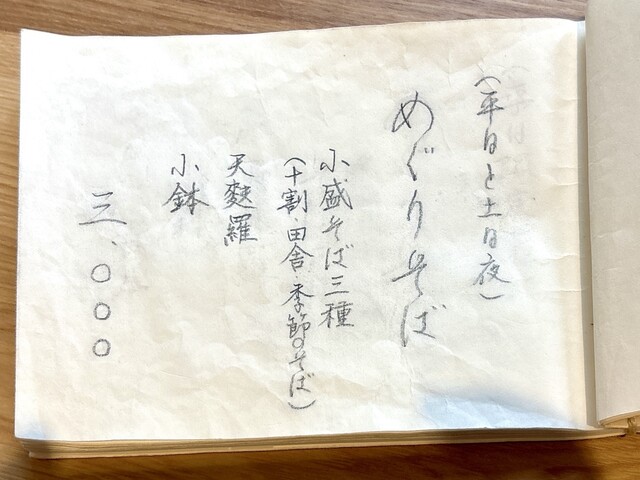 （平日と土日夜）
めぐりそば
小盛そば三種
（十割・田舎・季節のそば）
天麩羅
小鉢
三、〇〇〇